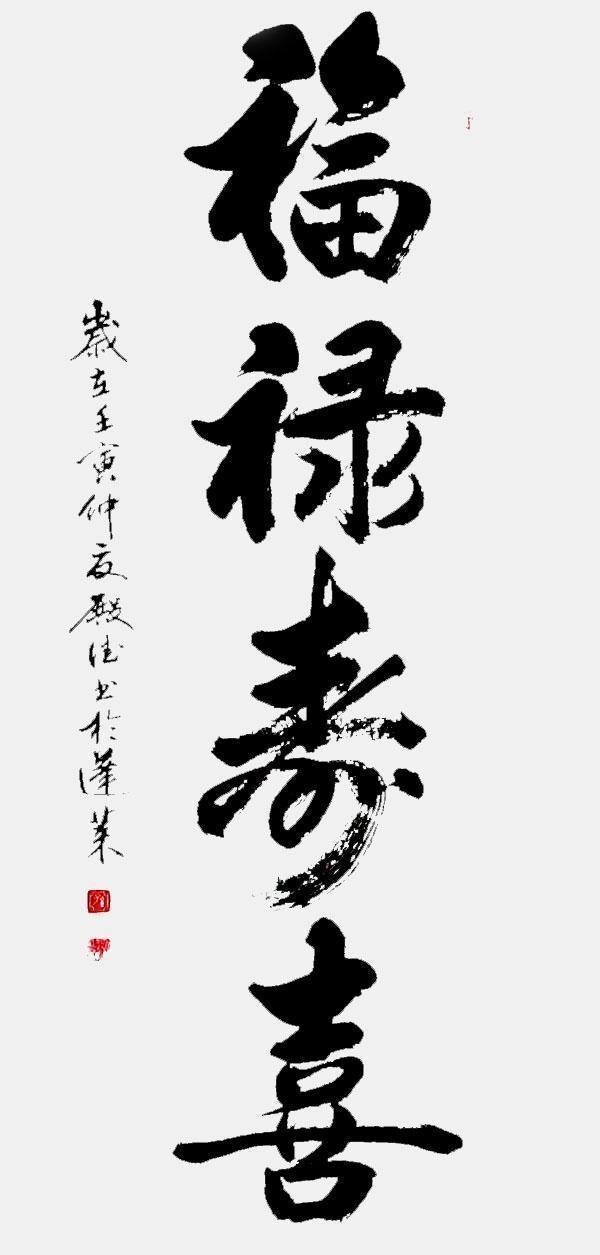 福禄寿喜
歲在壬寅仲夏殿德书於蓬莱